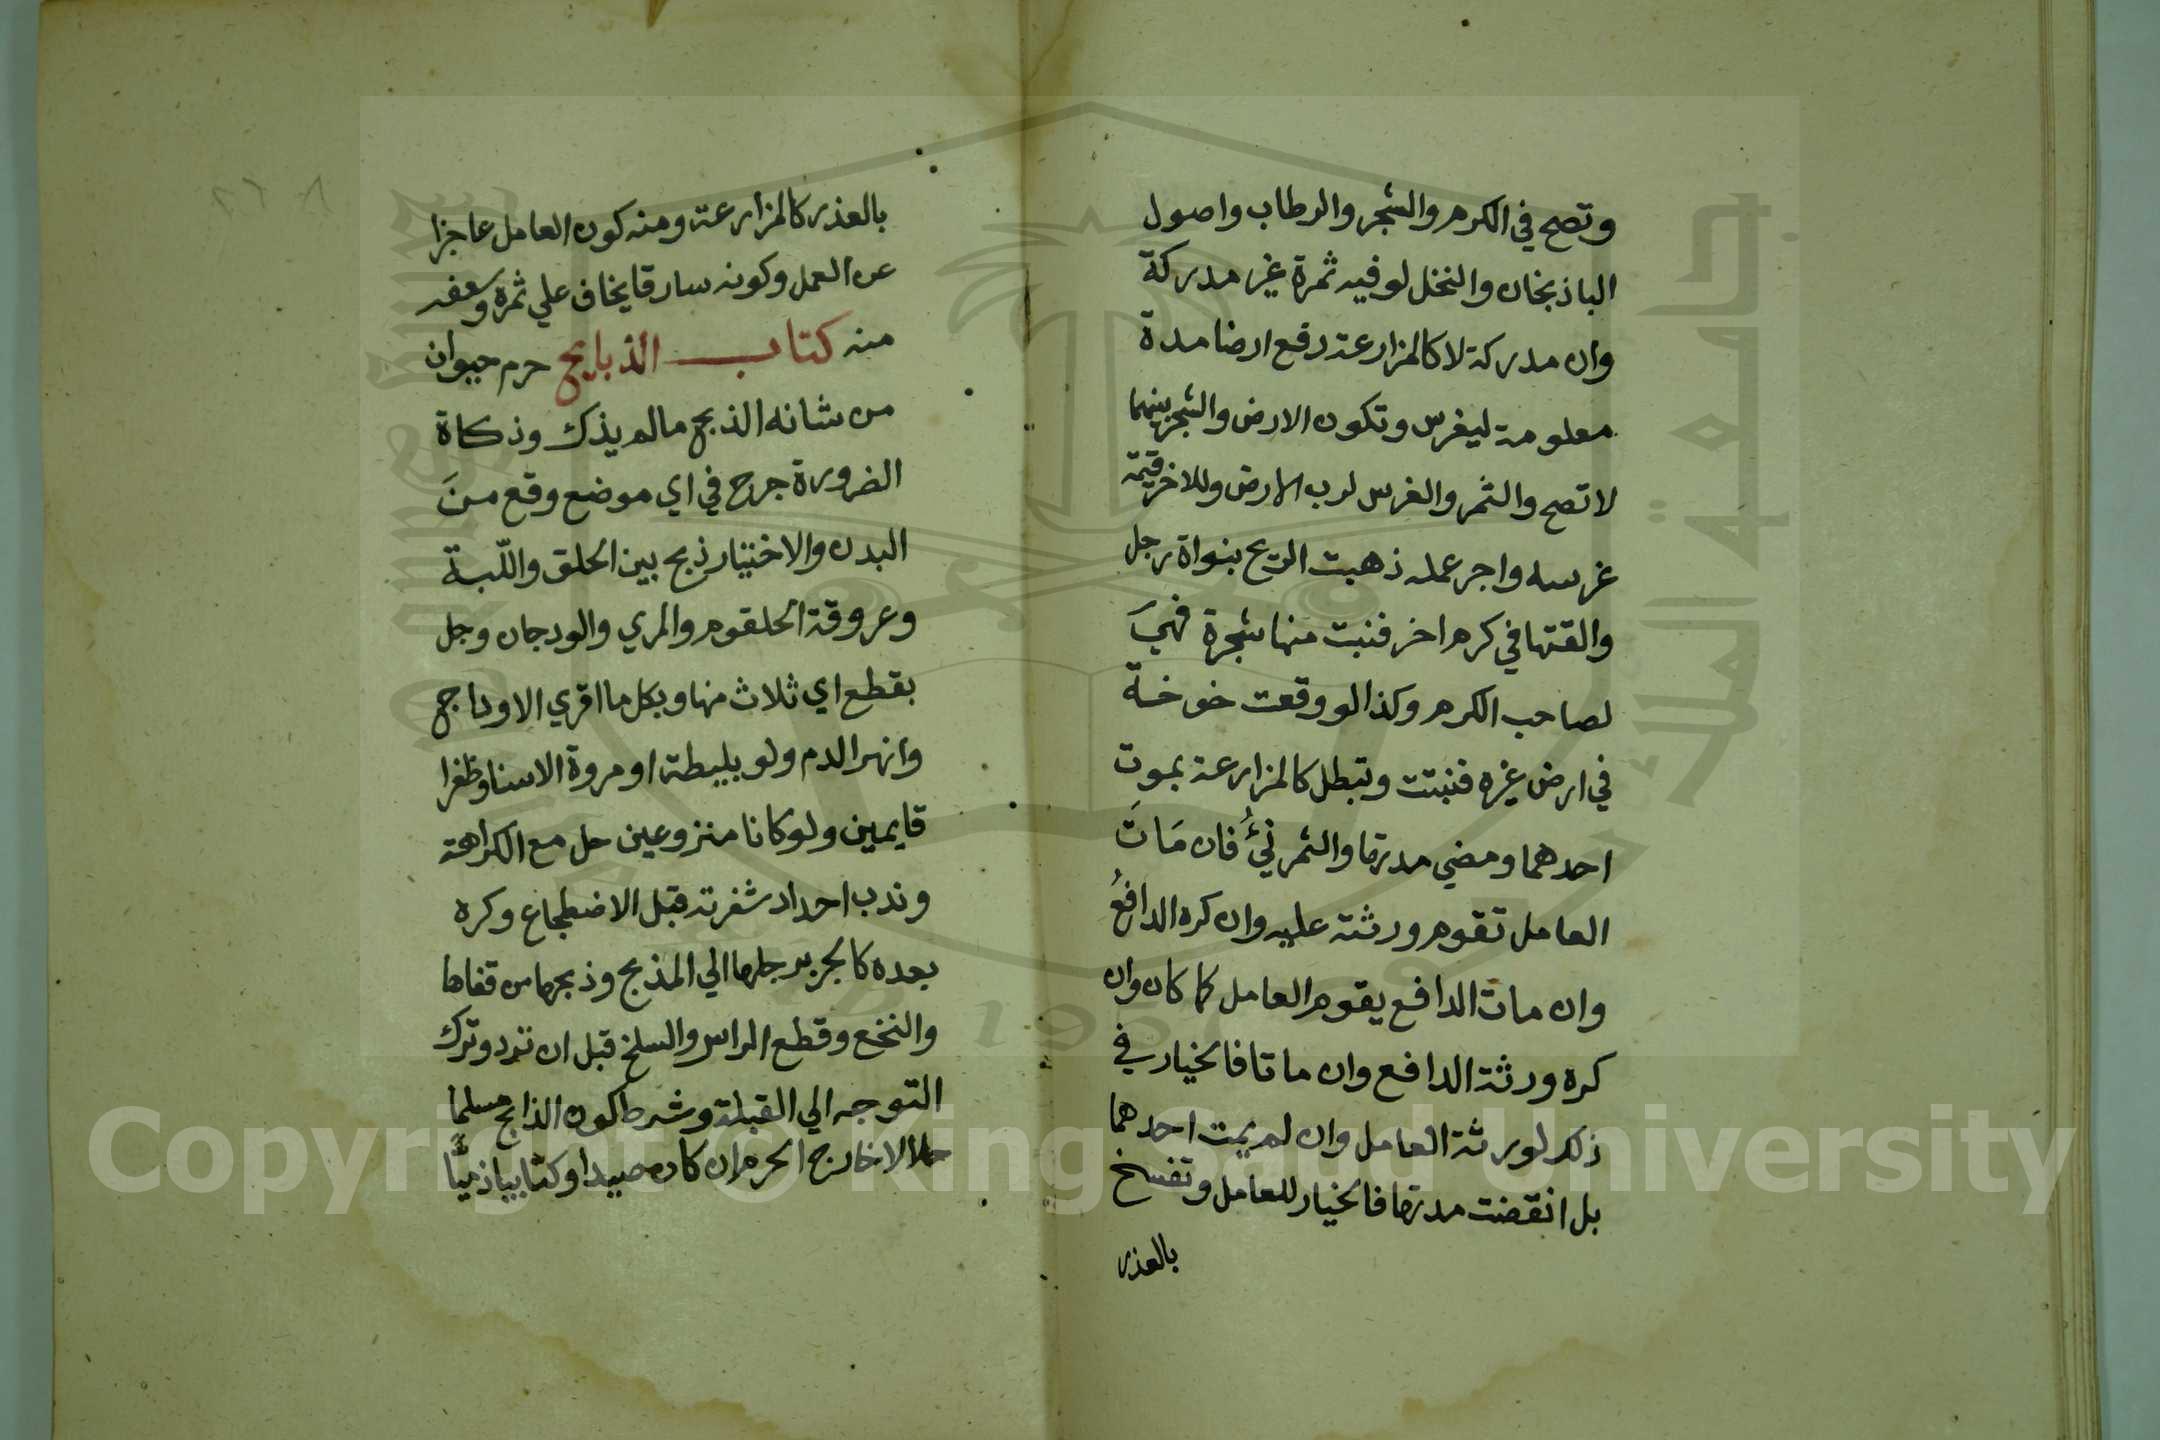 وتصح في الكرم والشجر والرطاب واصول
الباذنجان والنخل لو فيه ثمرة غير مدركة
وان مدركة لا كالمزارعة دفع ارضا مدة
معلومة ليغرس وتكون الارض والشجر بينهما
لا تصح والثمر والغرس لرب الارض وللاخر قيمة
غرسه واجر عمله ذهبت الريح بنواة رجل
والقتها في كرم اخر فنبت منها شجرة فهيَ
لصاحب الكرم وكذا لو وقعت خوخة
في ارض غيره فنبتت وتبطل كالمزارعة بموت
احدهما ومضي مدتها والثمر نيُ فان مَاتَ
العامل تقوم ورثته عليه وان كره الدافعُ
وان مات الدافع يقوم العامل كما كان وان
كره ورثة الدافع وان ماتا فالخيار في
ذلك لورثة العامل وان لم يمت احدهما
بل انقضت مدتها فالخيار للعامل وتفسخ
بالعذر
بالعذر كالمزارعة ومنه كون العامل عاجزا
عن العمل وكونه سارقا يخاف علي ثمره وسعفه
منه كتاب الذبايح حرم حيوان
من شانه الذبح ما لم يذك وذكاة
الضرورة جرح في اي موضع وقع منَ
البدن والاختيار ذبح بين الحلق واللّبة
وعروقة الحلقوم والمري والودجان وحل
بقطع اي ثلاث منها وبكل ما افري الاوداج
وانهر الدم ولو بليطة او مروة الا سنا وظفرا
قايمين ولو كانا منزوعين حل مع الكراهة
وندب احداد شفرته قبل الاضطجاع وكره
بعده كالجر برجلها الي المذبح وذبحها من قفاها
والنخع وقطع الراس والسلخ قبل ان تبرد وترك
التوجه الي القبلة وشرط كون الذابح مسلما
حلالا خارج الحرم ان كان صيدا او كتابيا ذميًا
Copyright © King Saud University
جامعة الملك سعود
King Saud University
1957